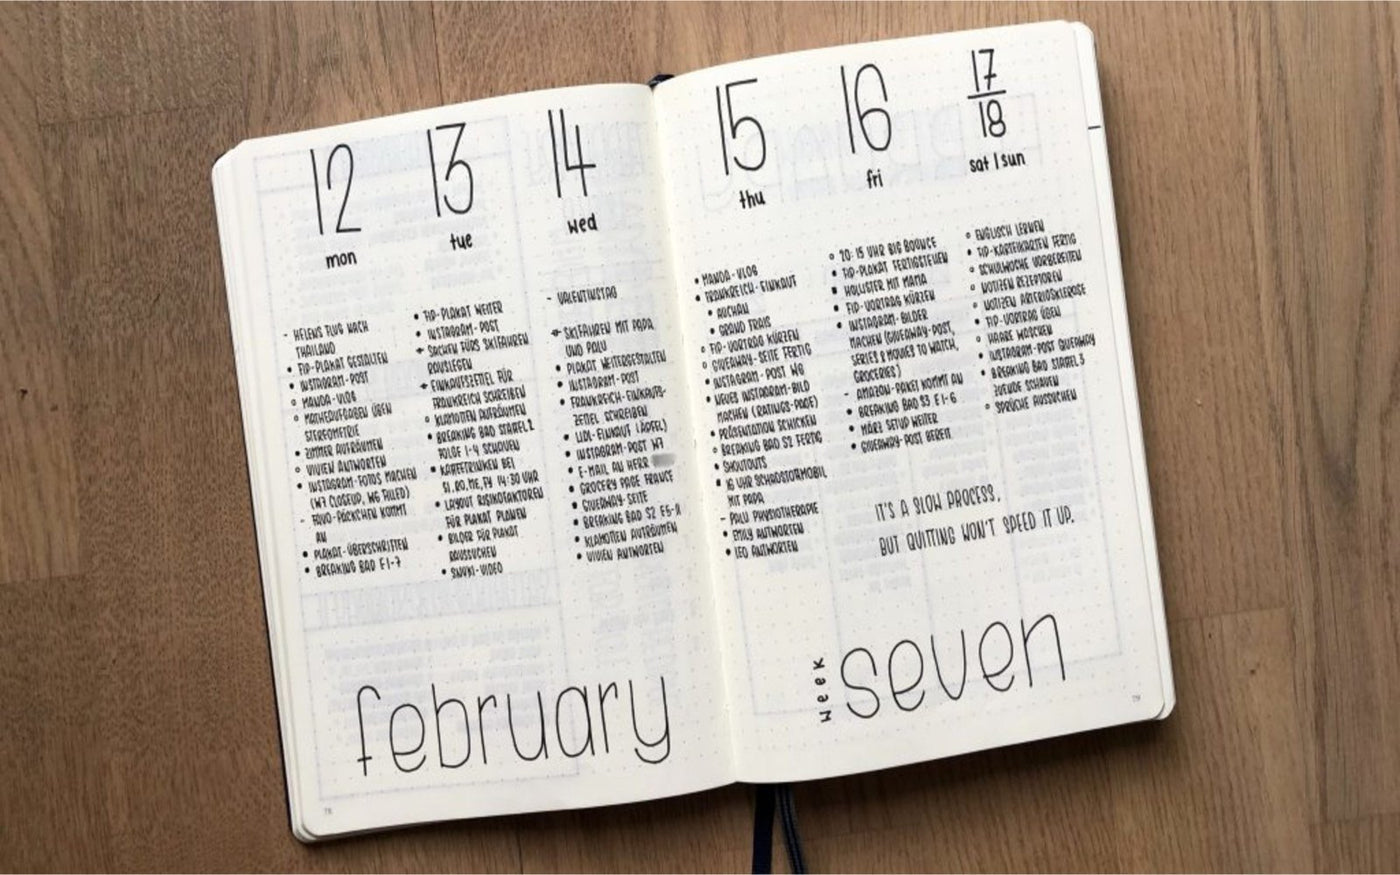 12
mon
- HELENS FLUG NACH
THAILAND
• FIP-PLAKAT GESTALTEN
• INSTAGRAM-POST
○ MANDA-VLOG
○ MATHEAUFGABEN ÜBEN
STEREOMETRIE
• ZIMMER AUFRÄUMEN
○ VIVIEN ANTWORTEN
• INSTAGRAM-FOTOS MACHEN
(W7 CLOSEUP, W6 FILLED)
- PÄCKCHEN KOMMT
AN
• PLAKAT-ÜBERSCHRIFTEN
• BREAKING BAD F1-7
13
tue
• FIP-PLAKAT WEITER
• INSTAGRAM-POST
• SACHEN FÜRS SKIFAHREN
RAUSLEGEN
• EINKAUFSZETTEL FÜR
FRANKREICH SCHREIBEN
○ KLAMOTTEN AUFRÄUMEN
• BREAKING BAD STAFFEL 2
FOLGE 1-4 SCHAUEN
• KAFFEETRINKEN BEI
14:30 UHR
• LAYOUT RISIKOFAKTOREN
FÜR PLAKAT PLANEN
• BILDER FÜR PLAKAT
RAUSSUCHEN
• VIDEO
14
wed
- VALENTINSTAG
• SKIFAHREN MIT PAPA
UND PALU
• PLAKAT WEITERGESTALTEN
• INSTAGRAM-POST
• FRANKREICH-EINKAUFS-
ZETTEL SCHREIBEN
• LIDL-EINKAUF (ÄPFEL)
• INSTAGRAM-POST W7
• E-MAIL AN HERR
• GROCERY PAGE FRANCE
• GIVEAWAY-SEITE
• BREAKING BAD S2 E5-11
• KLAMOTTEN AUFRÄUMEN
• VIVIEN ANTWORTEN
15
thu
• MANDA-VLOG
• FRANKREICH-EINKAUF
• AUCHAN
• GRAND FRAIS
○ FIP-VORTRAG KÜRZEN
○ GIVEAWAY-SEITE FERTIG
• INSTAGRAM-POST W8
• NEUES INSTAGRAM-BILD
MACHEN (RATINGS-PAGE)
• PRÄSENTATION SCHICKEN
○ BREAKING BAD S2 FERTIG
• SHOUTOUTS
• 16 UHR SCHADSTOFFMOBIL
MIT PAPA
- PALU PHYSIOTHERAPIE
• EMILY ANTWORTEN
• LEO ANTWORTEN
16
fri
○ 20:15 UHR BIG BOUNCE
• FIP-PLAKAT FERTIGSTELLEN
• HOLLISTER MIT MAMA
• FIP-VORTRAG KÜRZEN
• INSTAGRAM-BILDER
MACHEN (GIVEAWAY-POST,
SERIES & MOVIES TO WATCH,
GROCERIES)
- AMAZON-PAKET KOMMT AN
• BREAKING BAD S3 E1-6
• MÄRZ SETUP WEITER
• GIVEAWAY-POST BEREIT
17
18
sat | sun
○ ENGLISCH LERNEN
• FIP-KARTEIKARTEN FERTIG
○ SCHULWOCHE VORBEREITEN
○ NOTIZEN REZEPTOREN
○ NOTIZEN ARTERIOSKLEROSE
• FIP-VORTRAG ÜBEN
○ HAARE WASCHEN
• INSTAGRAM-POST GIVEAWAY
• BREAKING BAD STAFFEL 3
ZUENDE SCHAUEN
○ SPRÜCHE AUSSUCHEN
IT'S A SLOW PROCESS,
BUT QUITTING WON'T SPEED IT UP.
february
week
seven
78
79